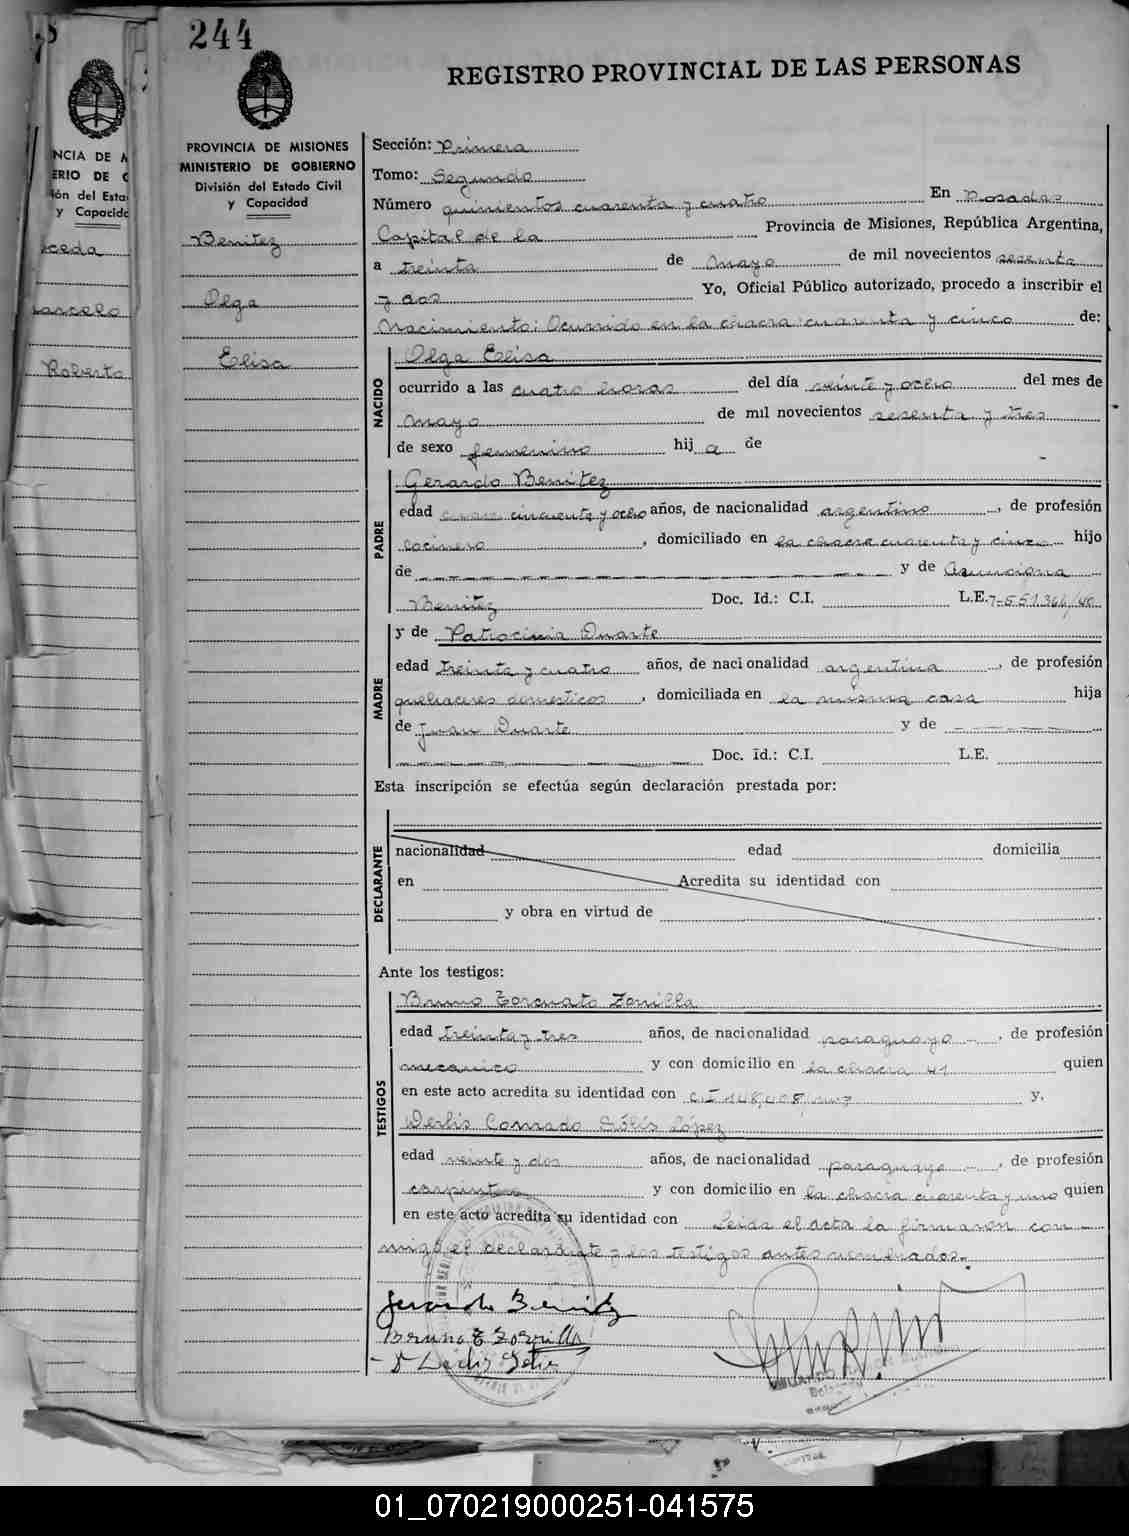 244
REGISTRO PROVINCIAL DE LAS PERSONAS
NCIA DE
ERIO DE
ón del Esta
y Capacida
Roberto
PROVINCIA DE MISIONES
MINISTERIO DE GOBIERNO
División del Estado Civil
y Capacidad
Benitez
Olga
Elisa
Sección: Primera
Tomo: Segundo
Número quinientos cuarenta y cuatro En Posadas
Capital de la Provincia de Misiones, República Argentina,
a treinta de Mayo de mil novecientos sesenta
y dos Yo, Oficial Público autorizado, procedo a inscribir el
Nacimiento: Ocurrido en la chacra cuarenta y cinco de:
NACIDO
Olga Elisa
ocurrido a las cuatro horas del día veinte y ocho del mes de
Mayo de mil novecientos sesenta y tres
de sexo femenino hij a de
PADRE
Gerardo Benitez
edad cincuenta y ocho años, de nacionalidad argentino, de profesión
cocinero, domiciliado en la chacra cuarenta y cinco hijo
de y de Asunciona
Benitez Doc. Id.: C.I. L.E.
MADRE
y de Patrocinia Duarte
edad treinta y cuatro años, de nacionalidad argentina, de profesión
quehaceres domesticos, domiciliada en la misma casa hija
de Juan Duarte y de
Doc. Id.: C.I. L.E.
Esta inscripción se efectúa según declaración prestada por:
DECLARANTE
nacionalidad edad domicilia
en Acredita su identidad con
y obra en virtud de
Ante los testigos:
TESTIGOS
Bruno Torcuato Zorrilla
edad treinta y tres años, de nacionalidad paraguayo, de profesión
mecanico y con domicilio en la chacra 41 quien
en este acto acredita su identidad con C.I y.
Conrado Sólis López
edad veinte y dos años, de nacionalidad paraguayo, de profesión
carpintero y con domicilio en la chacra cuarenta y uno quien
en este acto acredita su identidad con Leida el acta la firmaron con
migo el declarante y los testigos antes nombrados.-
Gerardo Benitez
Bruno T Zorrilla
01_070219000251-041575